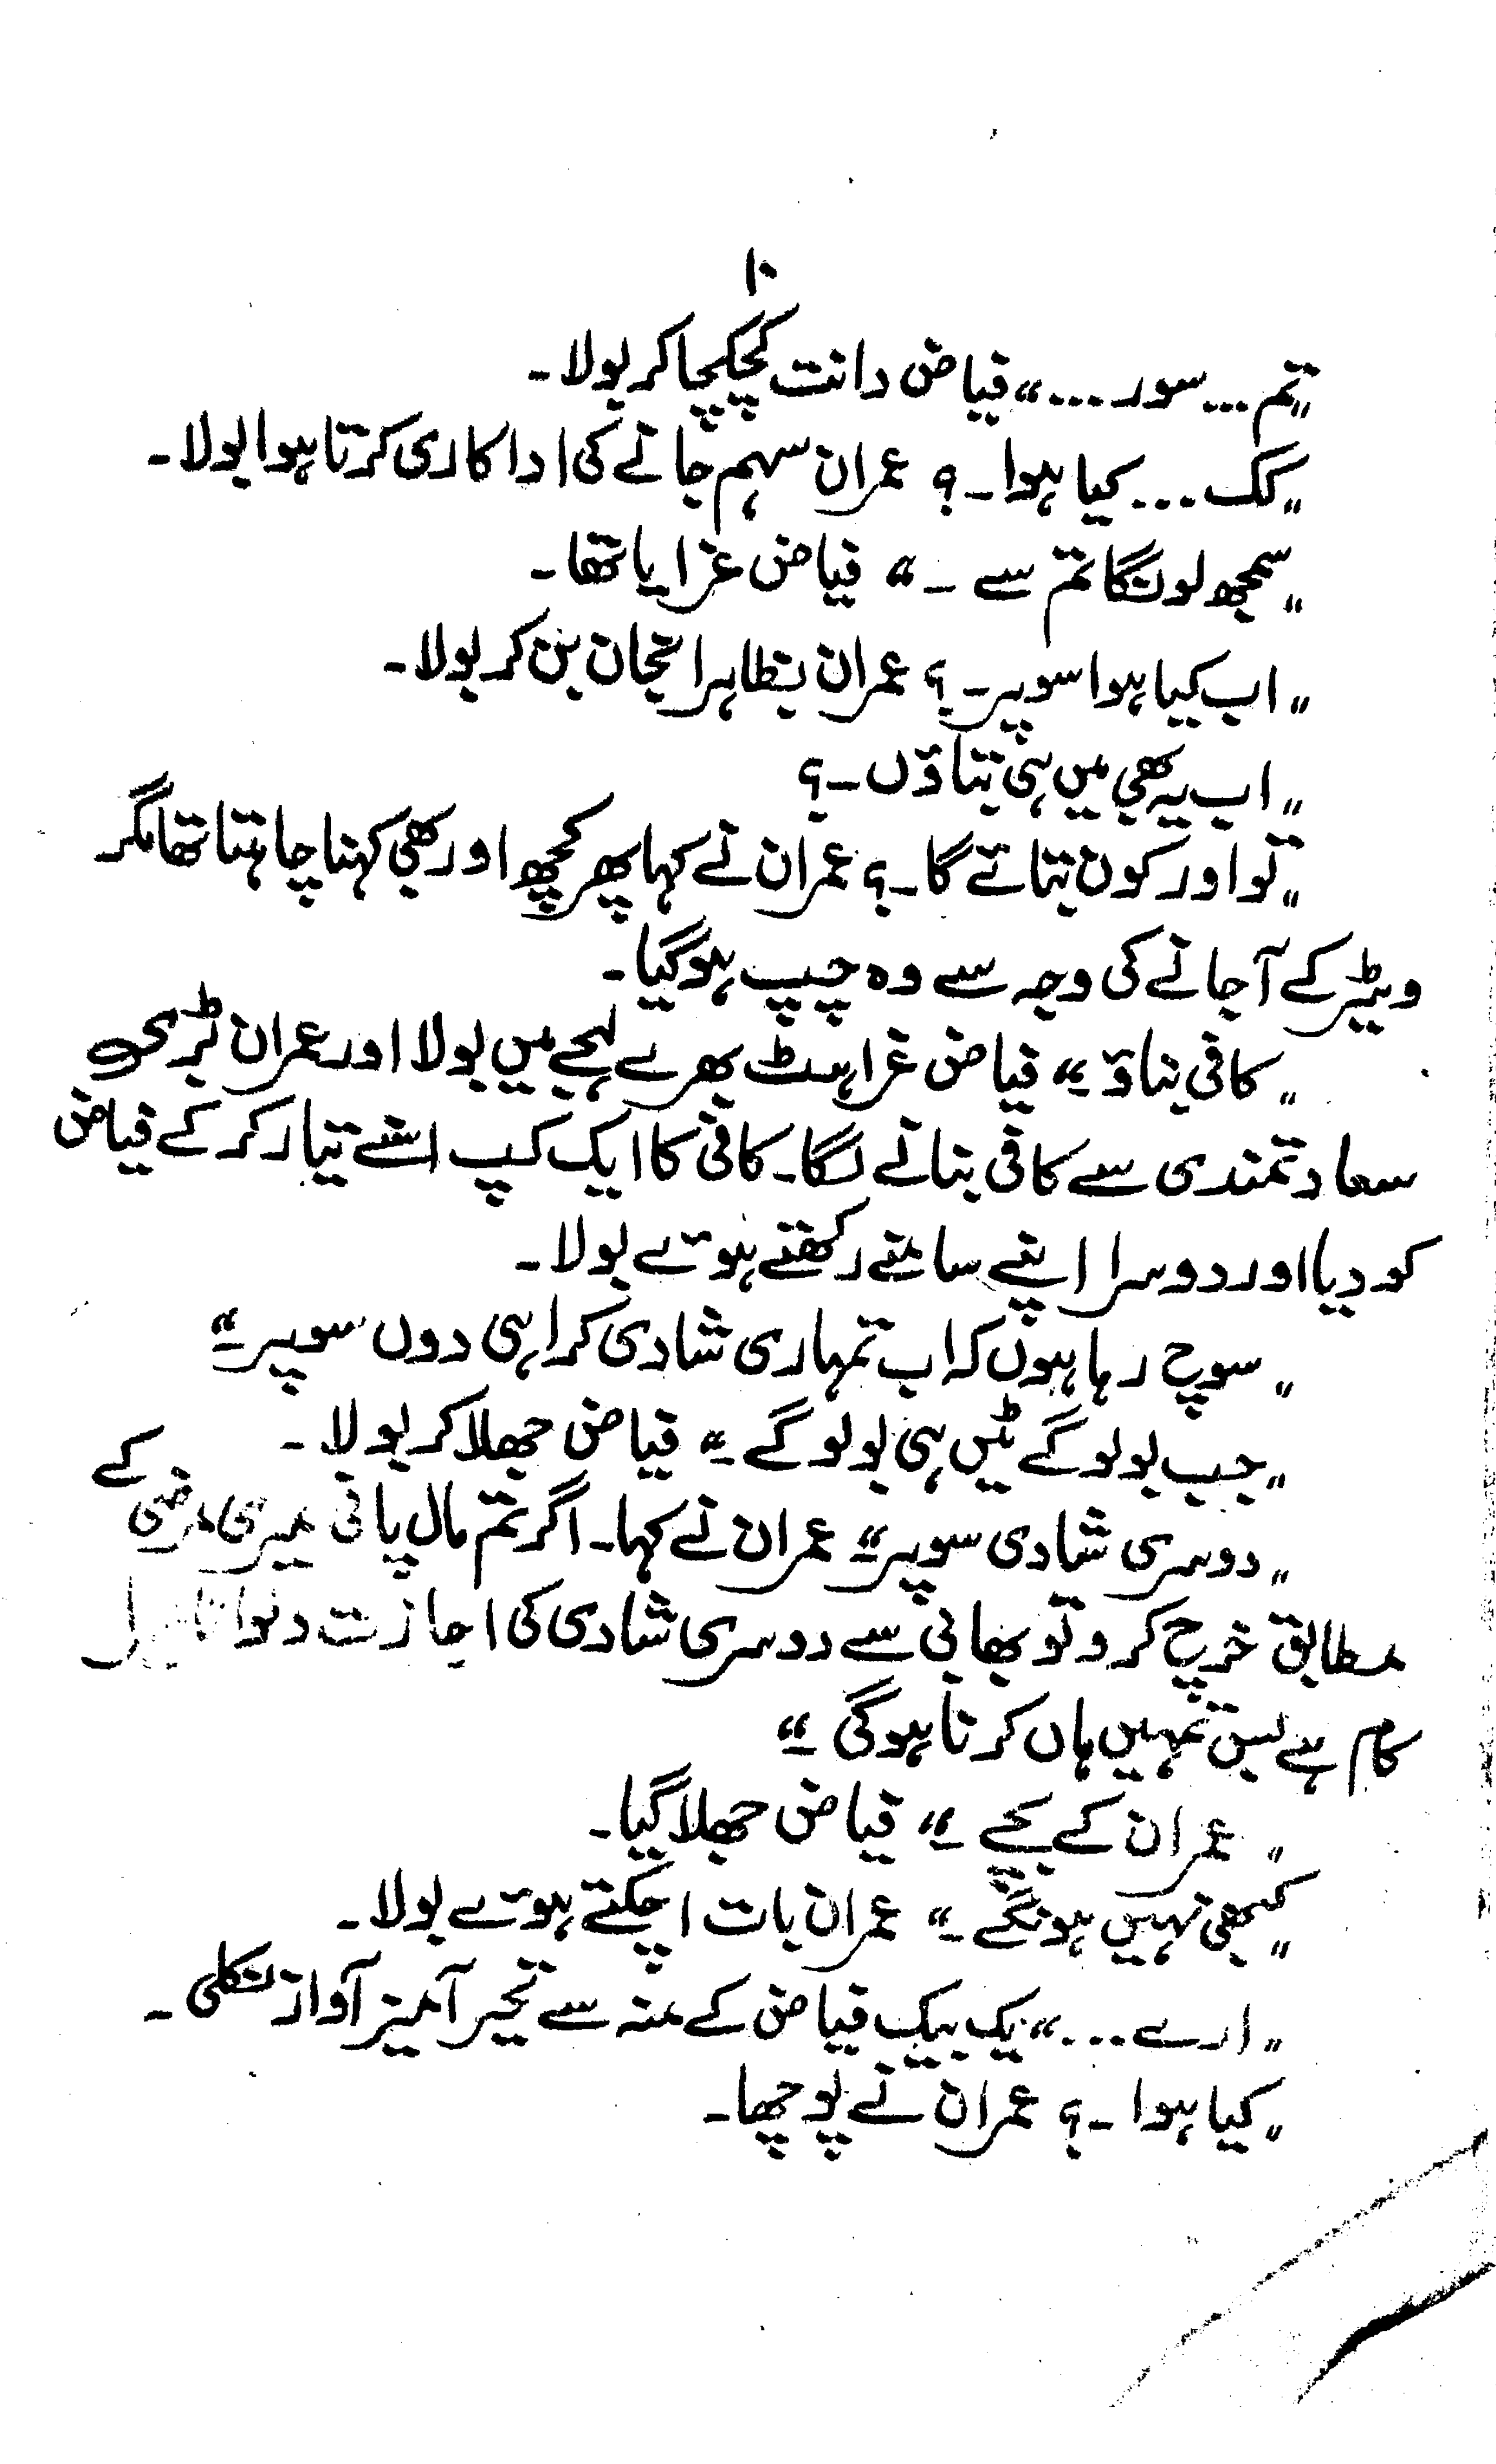 ۱۰
"تم... سور..." فیاض دانت کچکچا کر بولا۔
"کک... کیا ہوا۔؟ عمران سہم جانے کی اداکاری کرتا ہوا بولا۔
"سمجھ لونگا تم سے۔" فیاض غرایا تھا۔
"اب کیا ہوا سوپر۔؟ عمران بظاہر انجان بن کر بولا۔
"اب یہ بھی میں ہی بتاؤں۔؟
"تو اور کون بتائے گا۔؟ عمران نے کہا پھر کچھ اور بھی کہنا چاہتا تھا مگر
ویٹر کے آجانے کی وجہ سے وہ چپ ہو گیا۔
"کافی بناؤ۔" فیاض غراہٹ بھرے لہجے میں بولا اور عمران بڑی
سعادتمندی سے کافی بنانے لگا۔ کافی کا ایک کپ اسنے تیار کر کے فیاض
کو دیا اور دوسرا اپنے سامنے رکھتے ہوئے بولا۔
"سوچ رہا ہوں کہ اب تمہاری شادی کرا ہی دوں سوپر۔"
"جب بولو گے ٹیں ہی بولو گے۔" فیاض جھلا کر بولا۔
"دوسری شادی سوپر۔" عمران نے کہا۔ اگر تم مال پانی میری مرضی کے
مطابق خرچ کرو تو بھابی سے دوسری شادی کی اجازت دلوانا
کام ہے بس تمہیں ہاں کرنا ہوگی۔"
"عمران کے بچے۔" فیاض جھلا گیا۔
"کبھی نہیں ہونگے۔" عمران بات اچکتے ہوئے بولا۔
"ارے..." یک بیک فیاض کے منہ سے تحیر آمیز آواز نکلی۔
"کیا ہوا۔؟ عمران نے پوچھا۔